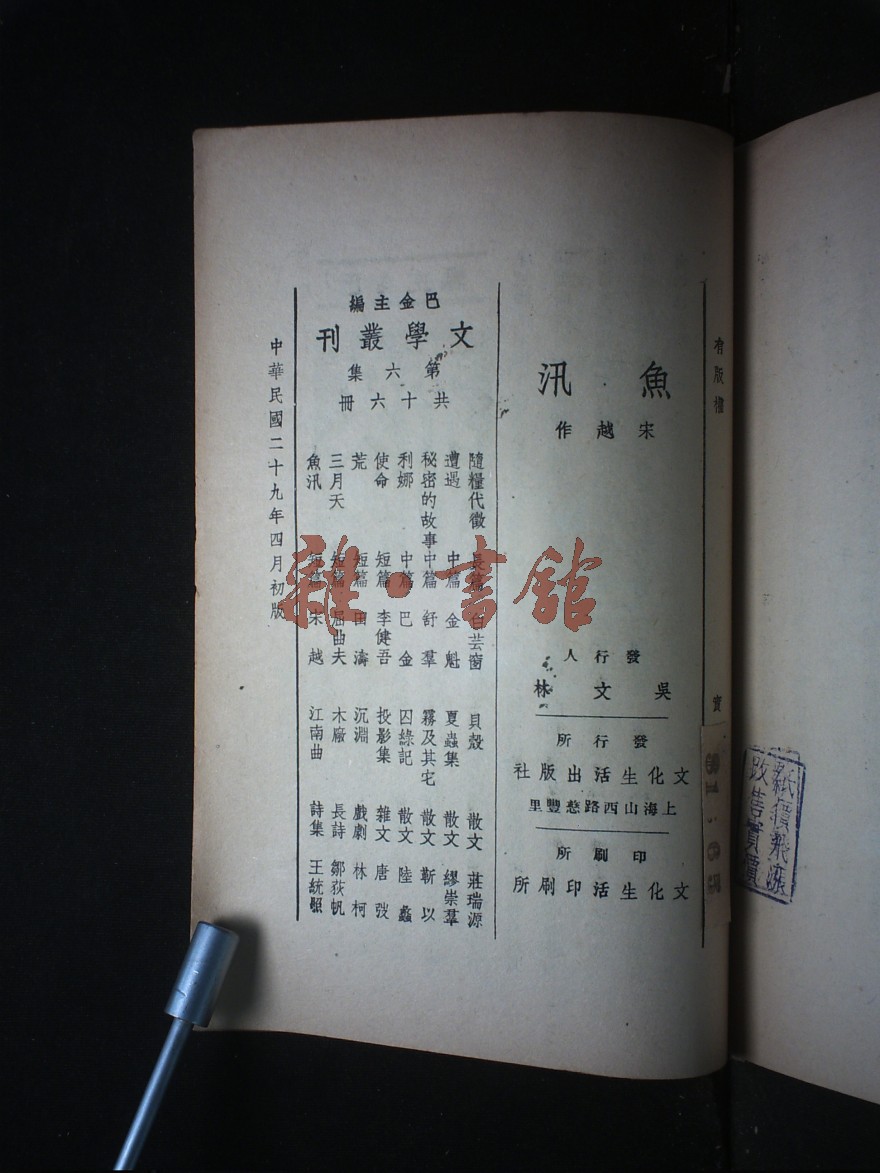 有版權
實
魚汛
宋越作
發行人
吳文林
發行所
文化生活出版社
上海山西路慈豐里
印刷所
文化生活印刷所
巴金主編
文學叢刊
第六集
共十六冊
隨糧代徵 長篇 白芸窗
遭遇 中篇 金魁
秘密的故事 中篇 舒羣
利娜 中篇 巴金
使命 短篇 李健吾
荒 短篇 田濤
三月天 短篇 屈曲夫
魚汛 短篇 宋越
貝殼 散文 莊瑞源
夏蟲集 散文 繆崇羣
霧及其宅 散文 靳以
囚綠記 散文 陸蠡
投影集 雜文 唐弢
沉淵 戲劇 林柯
木廠 長詩 鄒荻帆
江南曲 詩集 王統照
中華民國二十九年四月初版
紙價飛漲
改售實價
雜·書館